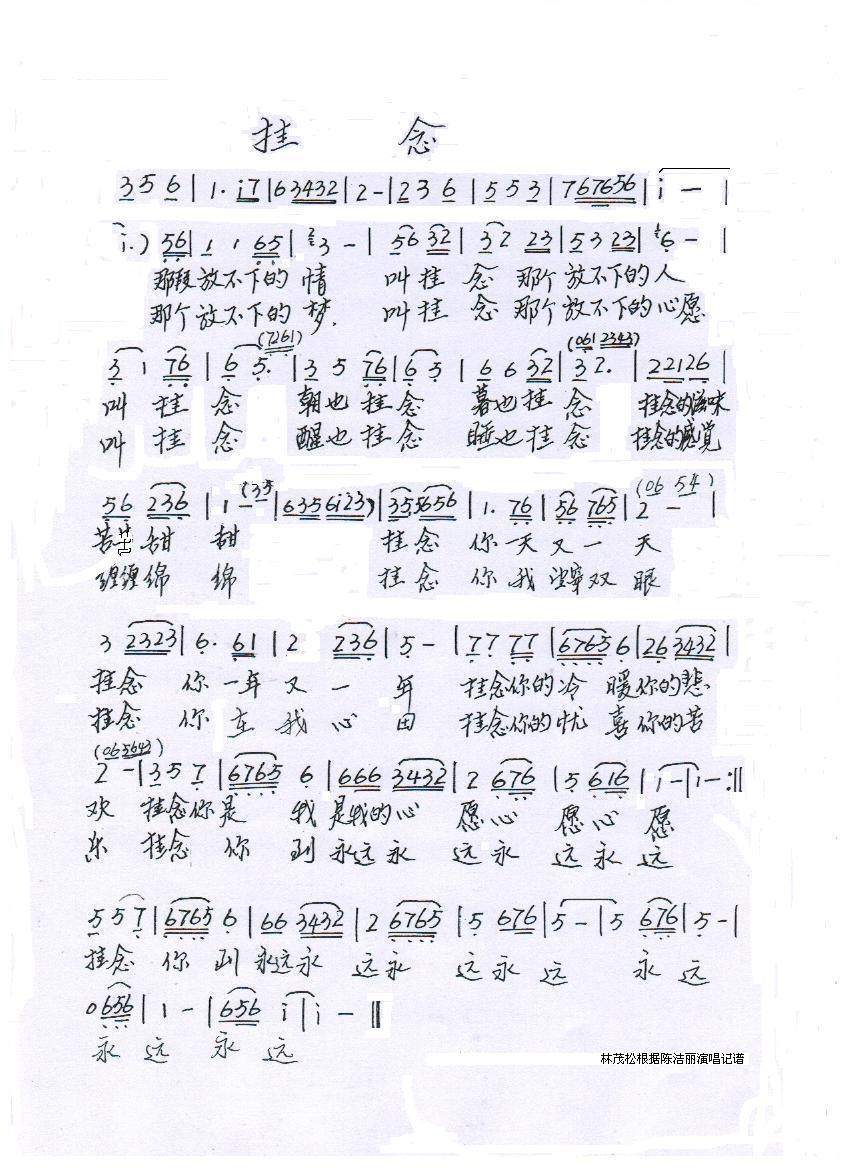 挂 念
3 5 6 | 1. i7 | 63432 | 2 - | 2 3 6 | 5 5 3 | 767656 | i - |
i.) 56 | 1 1 65 | 3 - | 56 32 | 32 23 | 53 23 | 6 - |
那段放不下的 情 叫挂 念 那个放不下的人
那个放不下的 梦. 叫挂 念 那个放不下的心愿
(7261)
(061 2343)
3 1 76 | 6 5. | 3 5 76 | 6 3 | 6 6 32 | 3 2. | 22126 |
叫 挂 念 朝也挂念 暮也挂念 挂念的滋味
叫 挂 念 醒也挂念 睡也挂念 挂念的感觉
(35
(06 54)
56 236 | 1 - | 6356i23) | 355656 | 1. 76 | 56 765 | 2 - |
苦 甜 甜 挂念 你一天又一天
缠缠绵 绵 挂念 你我 双眼
3 2323 | 6. 61 | 2 236 | 5 - | 77 77 | 6765 6 | 26 3432 |
挂念 你一年又一年 挂念你的冷 暖你的悲
挂念 你 在我心田 挂念你的忧 喜你的苦
(065643)
2 - | 3 5 7 | 6765 6 | 666 3432 | 2 676 | 5 616 | i - | i - :||
欢 挂念你是 我是我的心 愿心 愿心 愿
乐 挂念 你 到永远永 远永 远永远
5 5 7 | 6765 6 | 66 3432 | 2 6765 | 5 676 | 5 - | 5 676 | 5 - |
挂念 你 到永远永 远永 远永远 永远
0656 | 1 - | 656 i | i - ||
永 远 永 远
林茂松根据陈洁丽演唱记谱